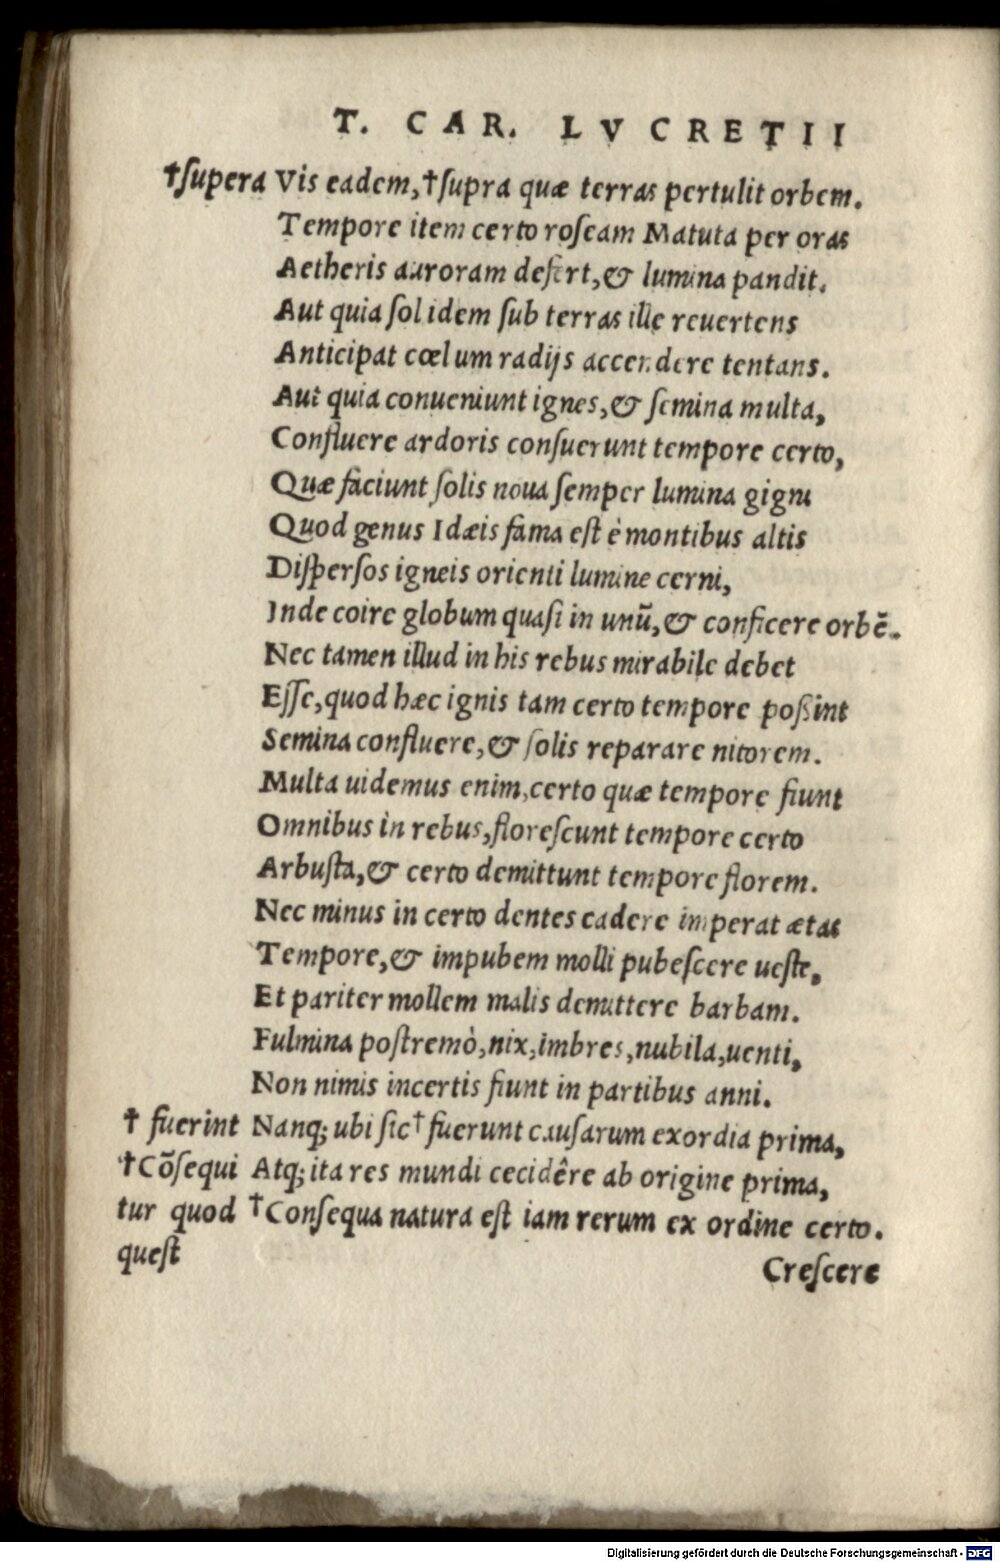 T. CAR. LVCRETII
†ſupera Vis eadem,†ſupra quæ terras pertulit orbem.
Tempore item certo roſeam Matuta per oras
Aetheris auroram defert,& lumina pandit.
Aut quia ſol idem ſub terras ille reuertens
Anticipat cœlum radijs accendere tentans.
Aut quia conueniunt ignes,& ſemina multa,
Confluere ardoris conſuerunt tempore certo,
Quæ faciunt ſolis noua ſemper lumina gigni
Quod genus Idæis fama eſt è montibus altis
Diſperſos igneis orienti lumine cerni,
Inde coire globum quaſi in unū,& conficere orbē.
Nec tamen illud in his rebus mirabile debet
Eſſe,quod hæc ignis tam certo tempore poſsint
Semina confluere,& ſolis reparare nitorem.
Multa uidemus enim,certo quæ tempore fiunt
Omnibus in rebus,floreſcunt tempore certo
Arbuſta,& certo demittunt tempore florem.
Nec minus in certo dentes cadere imperat ætas
Tempore,& impubem molli pubeſcere ueſte,
Et pariter mollem malis demittere barbam.
Fulmina poſtremò,nix,imbres,nubila,uenti,
Non nimis incertis fiunt in partibus anni.
† fuerint Nanq; ubi ſic †fuerunt cauſarum exordia prima,
†Cōſequi Atq; ita res mundi cecidêre ab origine prima,
tur quod †Conſequa natura eſt iam rerum ex ordine certo.
queſt
Creſcere
Digitalisierung gefördert durch die Deutsche Forschungsgemeinschaft - DFG